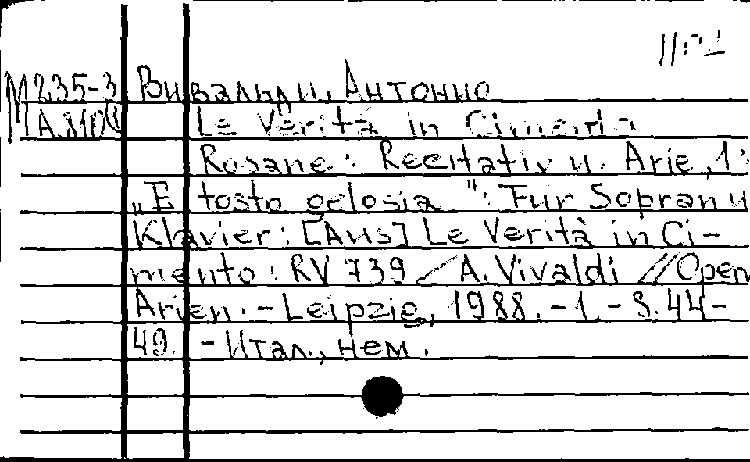 М235-3 Вивальди, Антонио
Le Verità in Cimento
Rosane: Recitativ u. Arie, 1:
„E tosto gelosia": Fur Sopran u
Klavier: [Aus] Le Verità in Ci-
mento: RV 739 / A. Vivaldi // Open
Arien. - Leipzig, 1988. - 1. - S. 44-
49. - Итал., нем.